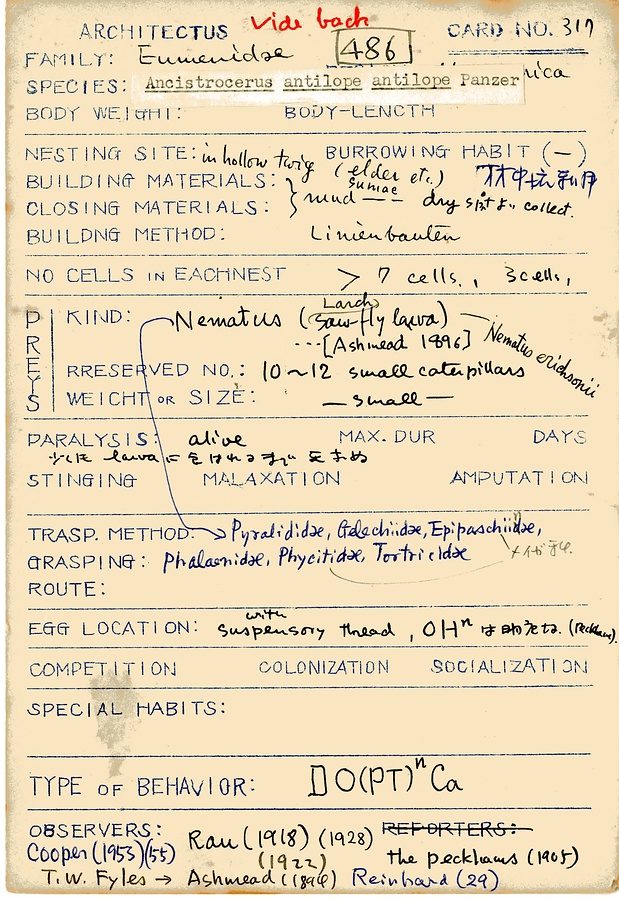 ARCHITECTUS Vide back CARD NO. 317
FAMILY: Eumenidae 486 rica
SPECIES: Ancistrocerus antilope antilope Panzer
BODY WEIGHT: BODY-LENGTH
NESTING SITE: in hollow twig BURROWING HABIT (—)
BUILDING MATERIALS: (elder etc.)
sumac
CLOSING MATERIALS: } mud —— dry collect.
BUILDNG METHOD: Linienbauten
NO CELLS IN EACHNEST > 7 cells, 3 cells,
PREYS
KIND: Nematus (Larch saw-fly larva) — Nematus erichsonii
---[Ashmead 1896]
RRESERVED NO.: 10~12 small caterpillars
WEICHT OR SIZE: — small —
PARALYSIS: alive MAX. DUR DAYS
larva
STINGING MALAXATION AMPUTATION
TRASP. METHOD: Pyralididae, Gelechiidae, Epipaschiidae,
GRASPING: Phalaenidae, Phycitidae, Tortricidae
ROUTE:
EGG LOCATION: with suspensory thread, OHⁿ (Peckham).
COMPETITION COLONIZATION SOCIALIZATION
SPECIAL HABITS:
TYPE OF BEHAVIOR: O(PT)ⁿ Ca
OBSERVERS: Rau (1918) (1928) REPORTERS:
Cooper (1953)(55) (1922) the Peckhams (1905)
T.W. Fyles → Ashmead Reinhard (29)